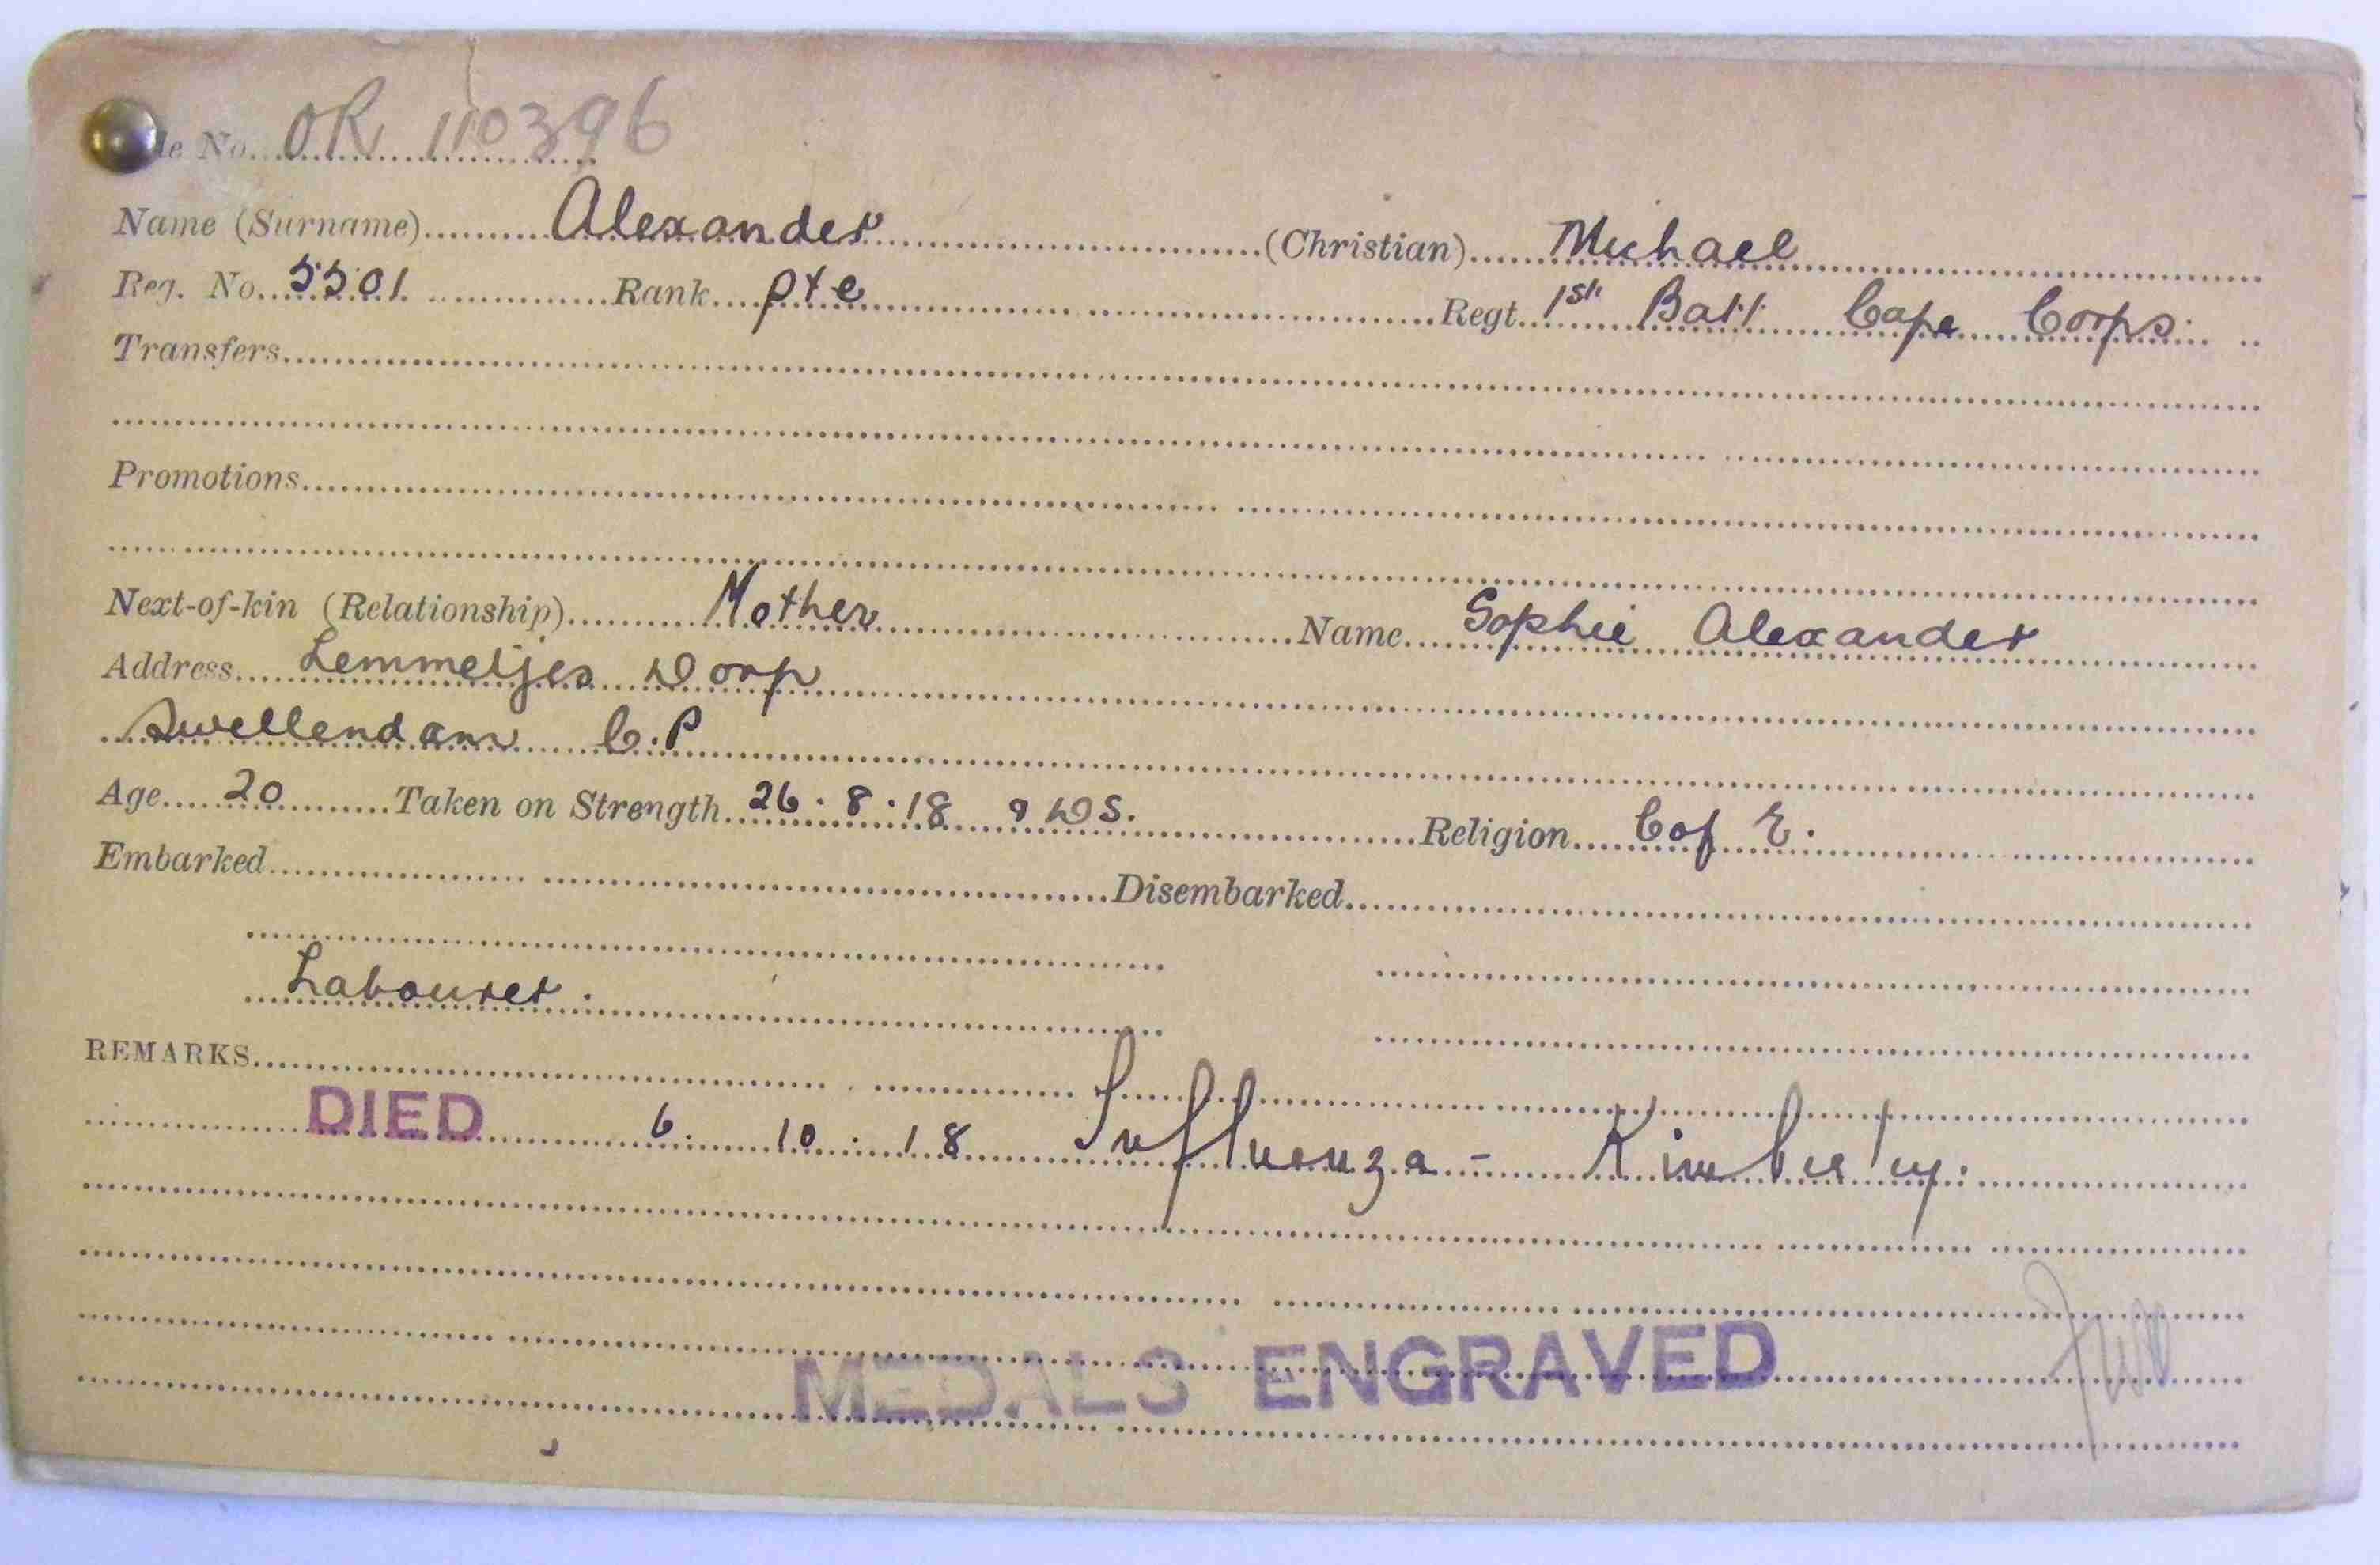 le No. OR 110396
Name (Surname) Alexander (Christian) Michael
Reg. No. 5501 Rank pte Regt. 1st Batt Cape Corps.
Transfers
Promotions
Next-of-kin (Relationship) Mother Name Sophie Alexander
Address Lemmetjes Dorp
Swellendam C.P
Age 20 Taken on Strength 26.8.18 9 DS. Religion C of E.
Embarked Disembarked
Labourer.
REMARKS
DIED 6. 10. 18 Influenza - Kimberley.
MEDALS ENGRAVED